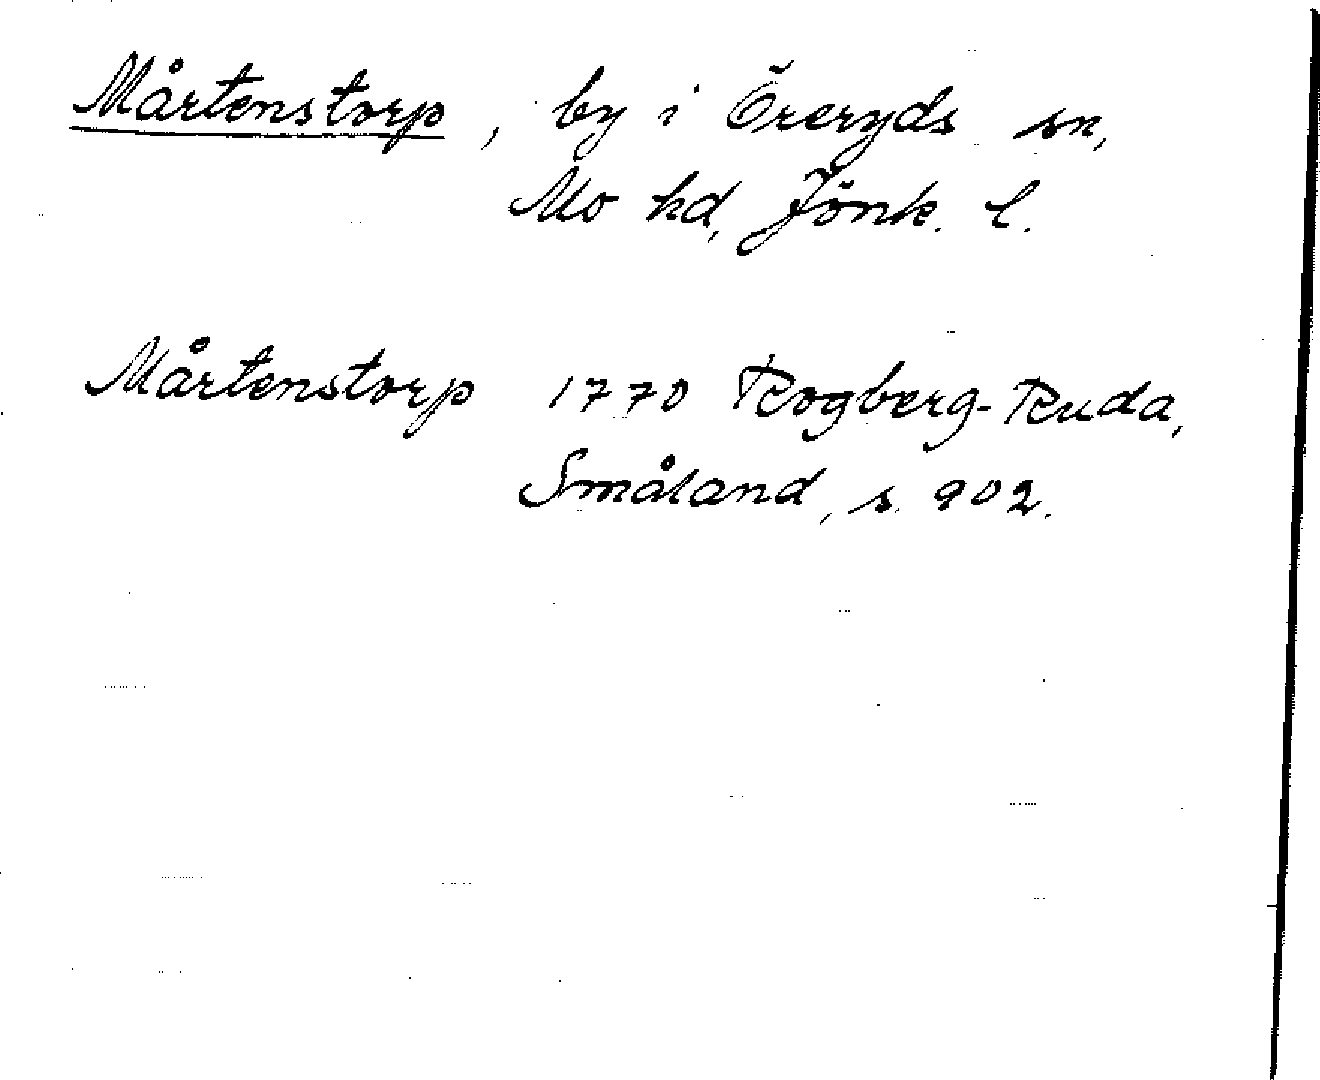 Mårtenstorp, by i Öreryds sn,
Mo hd, Jönk. l.
Mårtenstorp 1770 Rogberg-Ruda,
Småland, s. 902.